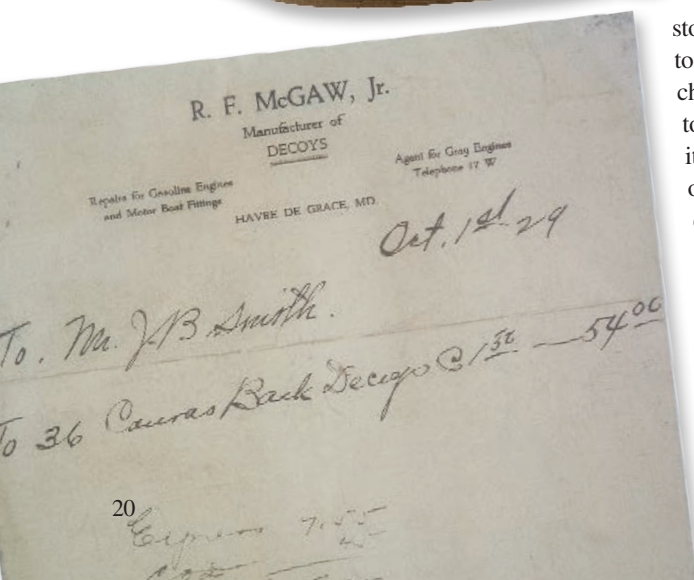 R. F. McGAW, Jr.
Manufacturer of
DECOYS
Repairs for Gasoline Engines
and Motor Boat Fittings
Agent for Gray Engines
Telephone 17 W
HAVRE DE GRACE, MD.
Oct. 1st 29
To. Mr. JB Smith.
To 36 Canvas Back Decoys @ 1 50 — 54 00
20
Express 7.55